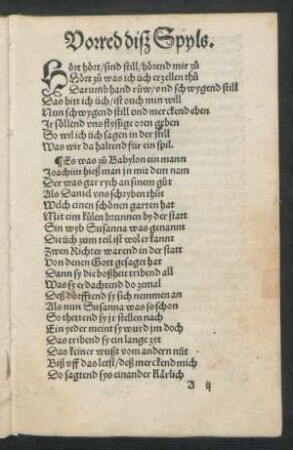 Vorred diß Spyls.
Hört hört/sind still/hörend mir zů
Hört zů was ich üch erzellen thů
Darumb hand růw/vnd schwygend still
Das bitt ich üch/ist ouch min will
Nun schwygend still vnd merckend eben
Ir söllend vns flyssige oren geben
So wil ich üch sagen in der still
Was wir da haltend für ein spil.
¶Es was zů Babylon ein mann
Joachim hieß man jn mit dem nam
Der was gar rych an sinem gůt
Als Daniel vns schryben thůt
Welch einen schönen garten hat
Mit eim külen brunnen by der statt
Sin wyb Susanna was genannt
Die üch zum teil ist wol erkannt
Zwen Richter warend in der statt
Von denen Gott gesaget hat
Dann sy die boßheit tribend all
Was sy erdachtend do zemal
Deß dörfftend sy sich nemmen an
Als nun Susanna was so schon
So thettend sy jr stellen nach
Ein yeder meint sy wurd jm doch
Das tribend sy ein lange zyt
Das keiner wußt vom andern nüt
Biß vff das letst/deß merckend mich
Do sagtend sys einander klärlich
A ij